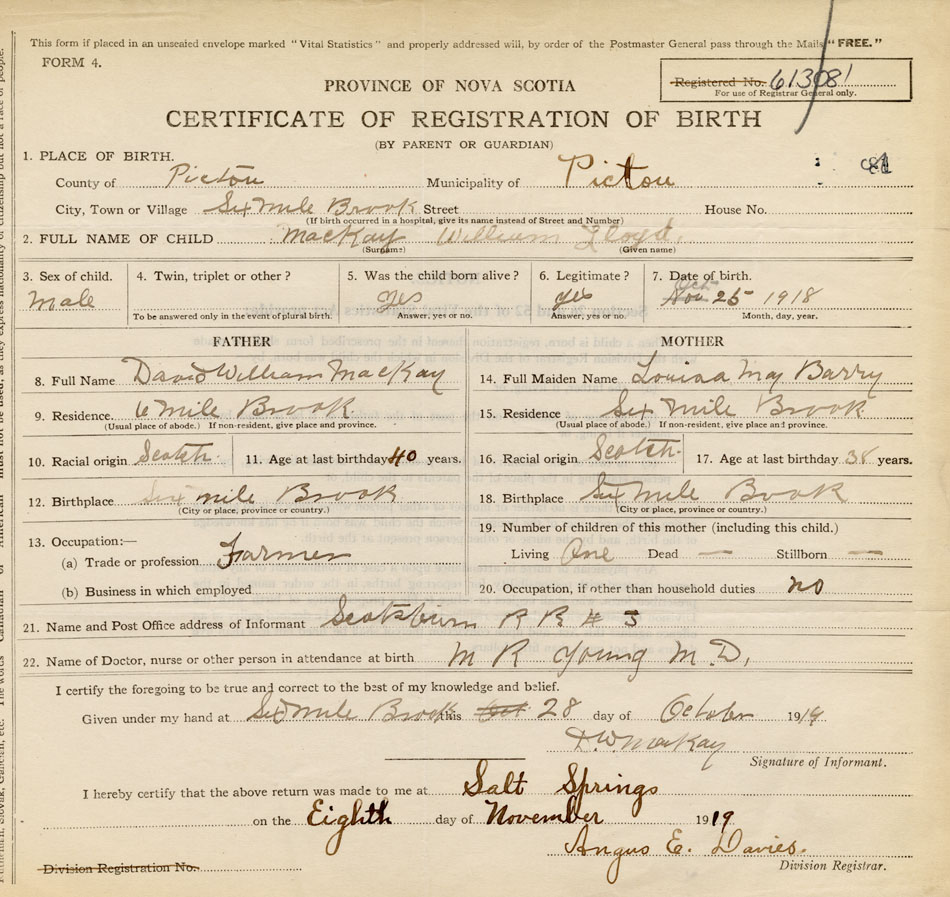 This form if placed in an unsealed envelope marked "Vital Statistics" and properly addressed will, by order of the Postmaster General pass through the Mails "FREE."
FORM 4.
Registered No. 613081
For use of Registrar General only.
PROVINCE OF NOVA SCOTIA
CERTIFICATE OF REGISTRATION OF BIRTH
(BY PARENT OR GUARDIAN)
1. PLACE OF BIRTH.
County of Pictou Municipality of Pictou
City, Town or Village Six Mile Brook Street House No.
(If birth occurred in a hospital, give its name instead of Street and Number)
2. FULL NAME OF CHILD MacKay William Lloyd.
(Surname) (Given name)
3. Sex of child. 4. Twin, triplet or other? 5. Was the child born alive? 6. Legitimate? 7. Date of birth.
Male yes yes Oct 25 1918
To be answered only in the event of plural birth. Answer, yes or no. Answer, yes or no. Month, day, year.
FATHER MOTHER
8. Full Name David William MacKay 14. Full Maiden Name Louisa May Barry
9. Residence. 6 Mile Brook 15. Residence Six Mile Brook
(Usual place of abode.) If non-resident, give place and province. (Usual place of abode.) If non-resident, give place and province.
10. Racial origin Scotch. 11. Age at last birthday 40 years. 16. Racial origin Scotch. 17. Age at last birthday 38 years.
12. Birthplace Six mile Brook 18. Birthplace Six Mile Brook
(City or place, province or country.) (City or place, province or country.)
19. Number of children of this mother (including this child.)
13. Occupation:—
Living One Dead — Stillborn —
(a) Trade or profession Farmer
(b) Business in which employed 20. Occupation, if other than household duties no
21. Name and Post Office address of Informant Scotsburn R R # 3
22. Name of Doctor, nurse or other person in attendance at birth M R Young M.D.
I certify the foregoing to be true and correct to the best of my knowledge and belief.
Given under my hand at Six Mile Brook this 28 day of October 1919
D.W. MacKay
Signature of Informant.
I hereby certify that the above return was made to me at Salt Springs
on the Eighth day of November 1919
Angus E. Davies.
Division Registration No. Division Registrar.